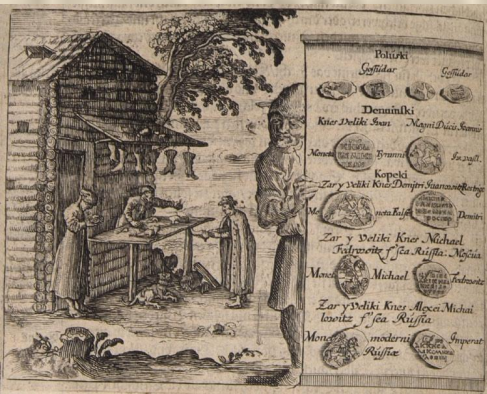 Poluski
Gossudar Gossudar
Denuinski
Knes Veliki Ivan Magni Ducis Ioannis
Moneta Tyranni
Kopeki
Zar y Veliki Knes Demitri
Mo neta Falsi Demitri
Zar y Veliki Knes Michael
Fedrowitz fsea Russia. Moscua
Monet Michael Fedrowitz
Zar y Veliki Knes Alexei Michai
lowitz fsea Russia
Monet moderni Imperat
Russiæ